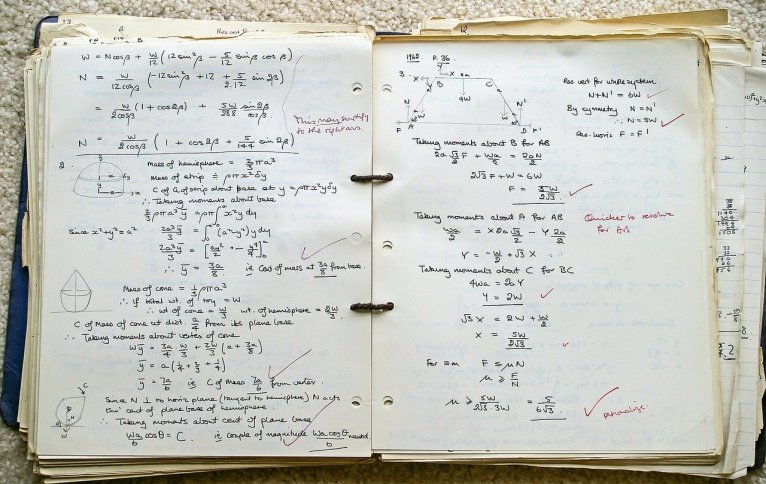 W = Ncosβ + W/12 (12 sin²β - 5/12 sinβ cosβ)
N = W/12cosβ (-12sin²β + 12 + 5/2.12 sin2β)
= W/2cosβ (1 + cos2β) + 5W/288 sin2β/cosβ
This may simplify
to the right ans.
N = W/2cosβ (1 + cos2β + 5/144 sin2β)
2.
Mass of hemisphere = 2/3 ρπa³
Mass of strip = ρπx²δy
C of G of strip about base at y = ρπx²yδy
∴ Taking moments about base
2/3 ρπa³ȳ = ρπ∫x²y dy
Since x²+y²=a²
2a³ȳ/3 = ∫(a²-y²)y dy
2a³ȳ/3 = [a²y²/2 - y⁴/4]
∴ ȳ = 3a/8 ie Cent of mass at 3a/8 from base
Mass of cone = 1/3 ρπa³
∴ If total wt. of toy = W
∴ wt of cone = W/3 wt. of hemisphere = 2W/3
C of Mass of cone wt dist. a/4 from its plane base
∴ Taking moments about vertex of cone
Wȳ = 3a/4 W/3 + 2W/3 (a + 3a/8)
ȳ = a(1/4 + 2/3 + 1/4)
ȳ = 7a/6 ie C of Mass 7a/6 from vertex
C
Since N ⊥ to horiz plane (tangent to hemisphere) N acts
thro' cent of plane base of hemisphere.
∴ Taking moments about cent of plane base
Wa/6 cosθ = C. ie couple of magnitude Wa cosθ/6 needed.
W
1962 P. 36
3.
X
B
C
4W
N
F
A
D
F'
Res vert for whole system
N+N' = 6W
By symmetry N = N'
∴ N = 3W
Res. horiz F = F'
Taking moments about B for AB
2a√3/2 F + Wa/2 = 2aN/2
2√3F + W = 6W
F = 5W/2√3
Taking moments about A for AB
Quicker to resolve
for AB
Wa/2 = X2a√3/2 - Y 2a/2
Y = -W/2 + √3X
Taking moments about C for BC
4Wa = 2aY
Y = 2W
√3X = 2W + W/2
X = 5W/2√3
For eqm F ≤ μN
μ ≥ F/N
μ ≥ 5W/2√3.3W = 5/6√3
rationalize